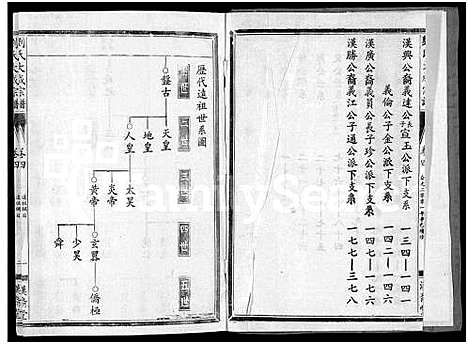 漢興公裔義達公長子宣玉公派下支系 一三四—一四一
義倫公子金公派下支系 一四二—一四六
漢廣公裔義員公長子珍公派下支系 一四七—一七六
漢勝公裔義江公子通公派下支系 一七七—三七八
歷代遠祖世系圖
盤古
天皇
地皇
人皇
太昊
炎帝
黃帝
玄囂
少昊
舜
僑極
氏大成宗譜
卷四
FamilySearch